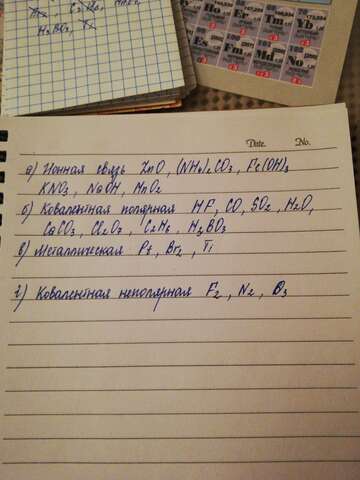 H₃BO₃,
Ho
Er
Tm
Yb
Es
Fm
Md
No
Date.
No.
а) Ионная связь ZnO, (NH₄)₂CO₃, Fe(OH)₃
KNO₃, NaOH, MnO₂
б) Ковалентная полярная HF, CO, SO₂, H₂O,
CaCO₃, Cl₂O₇, C₂H₆, H₃BO₃
в) Металлическая Pt, Br₂, Ti
г) Ковалентная неполярная F₂, N₂, O₃